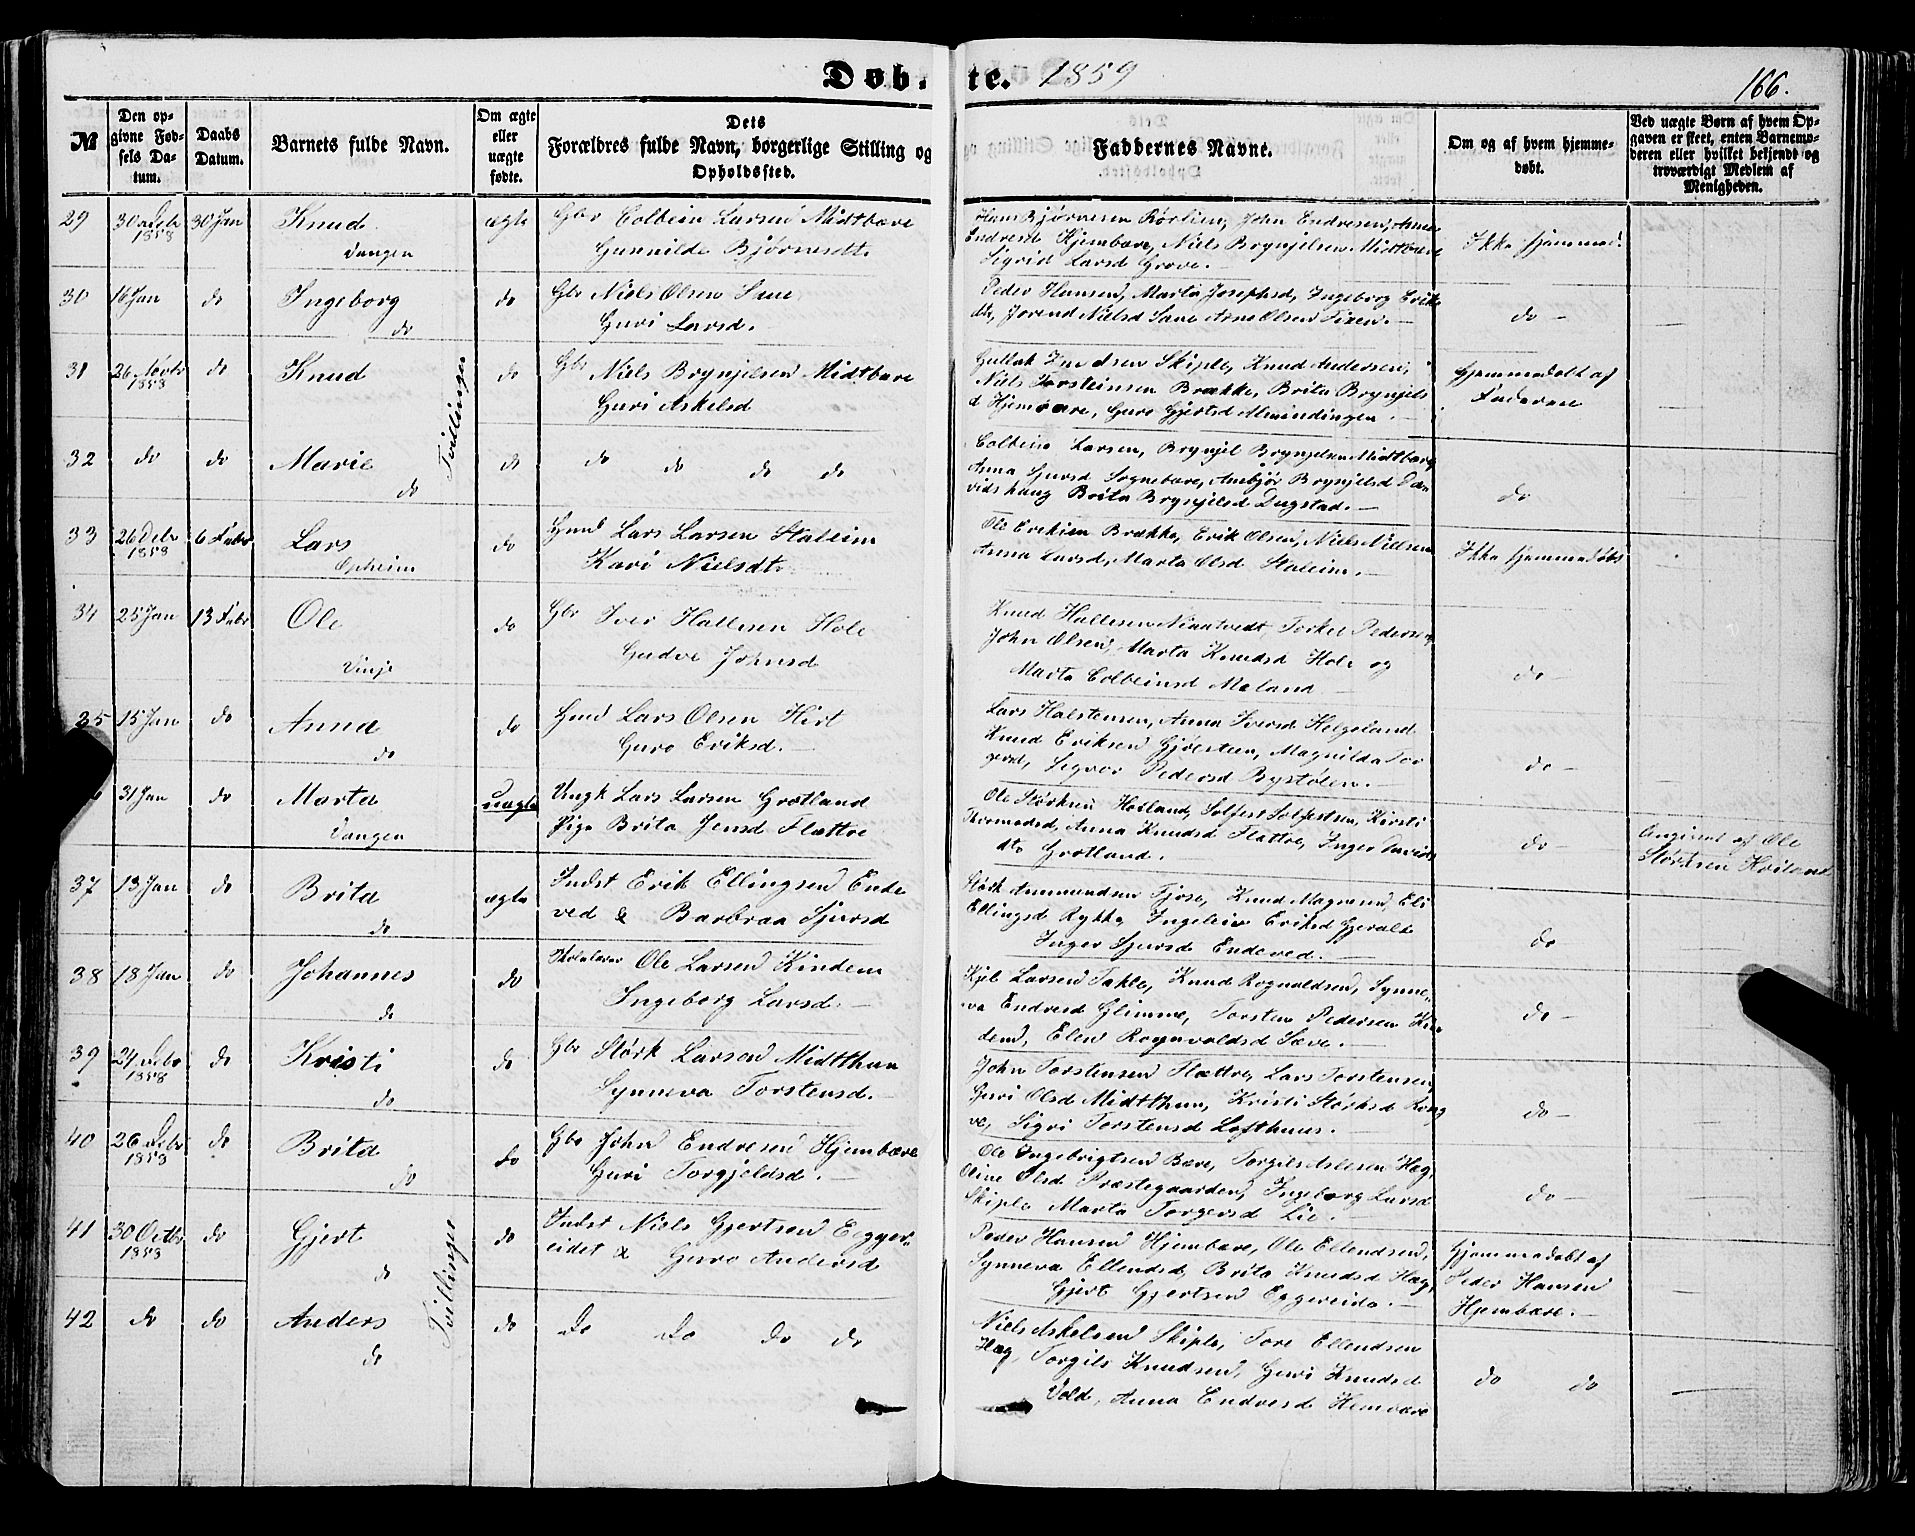 Døb- te. 1859
166.
№
Den op-
givne Fød-
sels Da-
tum.
Daabs
Datum.
Barnets fulde Navn.
Om ægte
eller
uægte
fødte.
Dets
Forældres fulde Navn, borgerlige Stilling og
Opholdssted.
Faddernes Navne.
Om og af hvem hjemme-
døbt.
Ved uægte Børn af hvem Op-
gaven er skeet, enten Barnemo-
deren eller hvilket bekjendt og
troværdigt Medlem af
Menigheden.
29 30 Decbr 1858 30 Jan Knud ægte Gbr Colbein Larsen Midtbære
Vangen Gunnilde Bjørnesdt.
Hans Bjørnesen Rørlien, John Endresen, Anna
Endresd Hjembære, Niels Brynjelsen Midtbære
Sigrid Larsd Grove.
Ikke hjemmed.
30 16 Jan do Ingeborg do Gbr Niels Olsen
do Guri Larsd.
Peder Hansen, Marta Josephsd, Ingeborg Eriks
dt, Jorend Nielsd Arne Olsen
do
31 26 Novbr 1858 do Knud do Gbr Niels Brynjelsen Midtbære
Guri Askelsd
Tvillinger
Gullak Skiple, Knud Andersen,
Niels Torsteinsen Brække, Brita Brynjels
d Hjembære, Guro Gjertsd Almindingen.
Hjemmedøbt af
Faderen
32 do do Marie do do do do do
do
Colbein Larsen, Brynjel Brynjelsen Midtbære,
Anna Sjursd Sognebære, Ambjør Brynjelsd Da
vidshaug Brita Brynjelsd Dugstad.
do
33 26 Decbr 1858 6 Febr Lars do Gmd Lars Larsen Stalein
Opheim Kari Nielsdt.
Ole Eriksen Brække, Erik Olsen, Niels Nielsen,
Anna Larsd, Marta Olsd Stalein.
Ikke hjemmedøbt
34 25 Jan 13 Febr Ole do Gbr Iver Hallesen Hole
Vinje Gudve Johnsd
Knud Hallesen Torkel Pedersen,
John Olsen, Marta Knudsd Hole og
Marta Colbeinsd Mæland
do
35 15 Jan do Anna do Gmd Lars Olsen Hirt
do Guro Eriksd.
Lars Halstensen, Anna Iversd Helgeland
Knud Eriksen Gjørsteen, Magnilda Tor
gersd, Sigvor Pedersd Bystølen.
do
31 Jan do Marta uægte Ungk Lars Larsen Grotland
Vangen Pige Brita Jensd Flættre
Ole Størksen Hæland, Solfest Solfestsen, Kirsti
Thormodsd, Anna Knudsd Flattre, Inger Davids
dt Grotland.
do
Angivet af Ole
Størksen
37 13 Jan do Brita ægte Indst Erik Ellingsen Ende
do ved & Barbraa Sjursd
Størk Ammundsen Fjose, Knud Magnesen, Eli
Ellingsd Rykke, Ingeleiv Eriksd Gjeralt
Inger Sjursd Endeved.
do
38 18 Jan do Johannes do Skolelærer Ole Larsen Kindem
do Ingeborg Larsd.
Kjel Larsen Takle, Knud Rognaldsen, Synne-
va Endresd Glimme, Torsten Pedersen Kin
dem, Elen Rognvaldsd Sæve.
do
39 24 Decbr 1858 do Kristi do Gbr Størk Larsen Midtthun
do Synneva Torstensd.
John Torstensen Flættre, Lars Torstensen,
Guri Olsd Midtthun, Kristi Størksd Rong
ve, Sigri Torstensd Lofthuus.
do
40 26 Decbr 1858 do Brita do Gbr John Endresen Hjembære
do Guri Torgjeldsd.
Ole Ingebrigtsen Bære, Torgils Aslesen Hæg,
Oline Olsd Præstegaarden, Ingeborg Larsd
Skiple Marta Torgersd Lie.
do
41 30 Octbr 1858 do Gjert do Indst Niels Gjertsen Egger-
do eidet & Guro Andersd
Tvillinger
Peder Hansen Hjembære, Ole Ellendsen,
Synneva Ellendsd, Brita Knudsd Hæg,
Gjert Gjertsen Eggereide.
Hjemmedøbt af
Peder Hansen
Hjembære.
42 do do Anders do do do do do
do
Niels Askelsen Skiple, Tore Ellendsen
Hæg, Torgils Knudsen, Guri Knudsd
Vold, Anna Endresd Hembære
do do